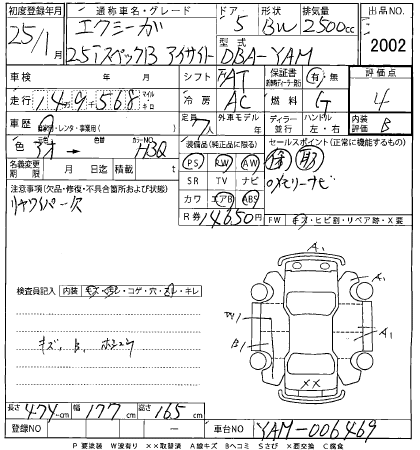 初度登録年月 通称車名・グレード ドア 形状 排気量 出品NO.
25/1月 エクシーガ 5 BW 2500cc 2002
2.5i スペックB アイサイト 型式 DBA-YAM
車検 年 月 シフト FAT 保証書 有 無 評価点
走行 14万9千568 マイル キロ 冷房 AC 燃料 G 4
車歴 自家用・レンタ・事業用( ) 定員 7人 外車モデル 年 ディーラー 並行 ハンドル 左・右 内装評価 B
色 色替 カラーNO. H3Q 装備品(純正品に限る) セールスポイント(正常に機能するもの)
名義変更期限 月 日迄 積載 t PS PW AW 保 取
注意事項(欠品・修復・不具合箇所および状態) SR TV ナビ メモリーナビ
リヤワイパー欠 カワ エアB ABS
R券 14650円 FW キズ・ヒビ割・リペア跡・X要
検査員記入 内装 キズ・汚レ・コゲ・穴・スレ・キレ
キズ、B、
A1
A1
W1
A1
B1
XX
長さ 474cm 幅 177cm 高さ 165cm
登録NO ー 車台NO YAM-006469
P要塗装 W波有り XX取替済 A線キズ Bヘコミ Sさび X要交換 C腐食